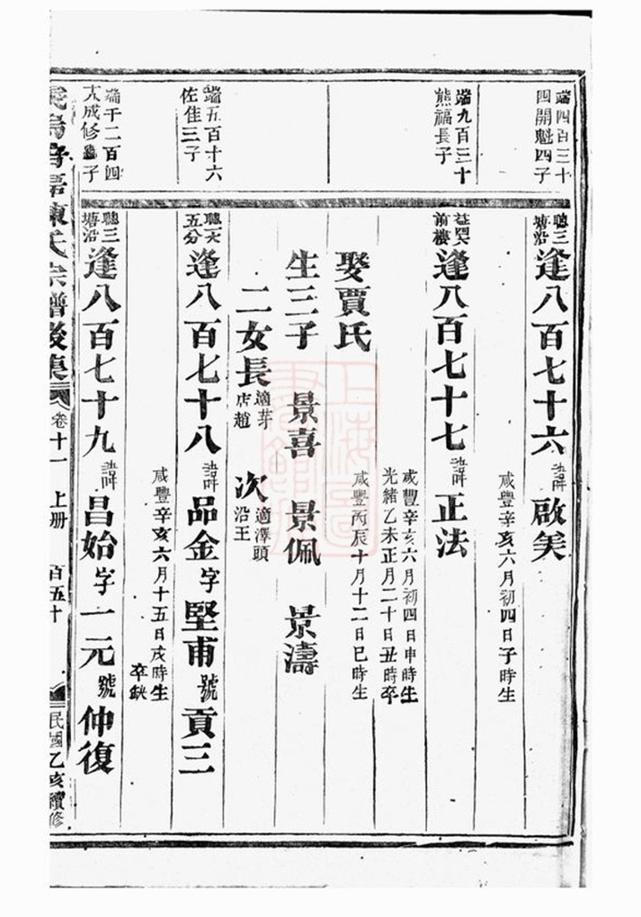 端四百三十
四開魁四子
聰三
塘沿
逢八百七十六 諱 啟美
咸豐辛亥六月初四日子時生
端九百三十
熊福長子
前樓
逢八百七十七 諱 正法
咸豐辛亥六月初四日申時生
光緒乙未正月二十日丑時卒
娶賈氏
咸豐丙辰十月十二日巳時生
生三子 景喜 景佩 景濤
二女長 適芽店趙 次 適澤頭沿王
端五百十六
佐佳三子
五分
逢八百七十八 諱 品金 字 堅甫 號 貢三
咸豐辛亥六月十五日戌時生
卒缺
端千二百四
大成修子
聰三
塘沿
逢八百七十九 諱 昌始 字 一元 號 仲復
陳氏宗譜後集 卷十一 上册 百五十 民國乙亥續修
上海圖書館